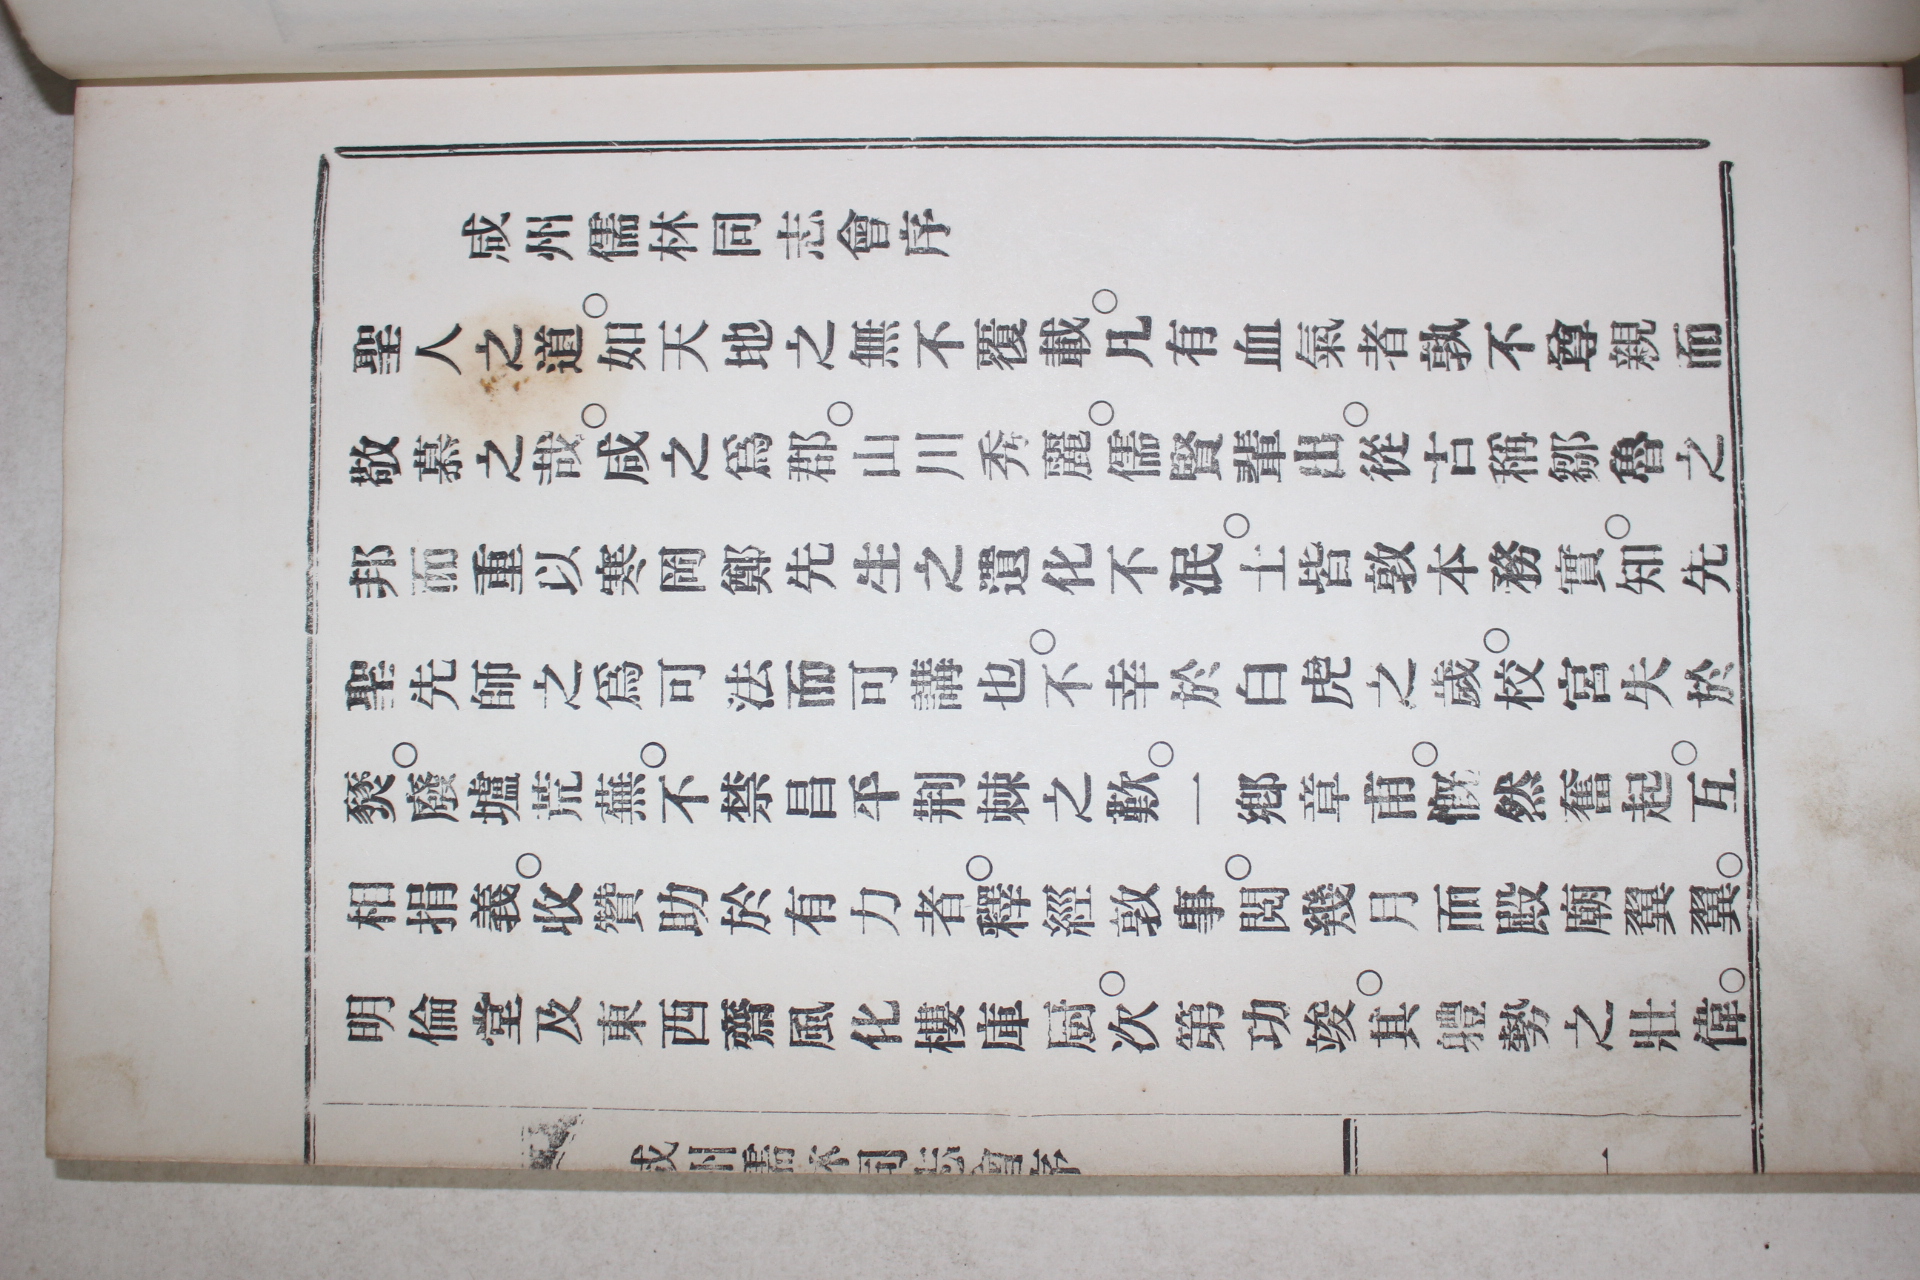 咸州儒林同志會序
聖人之道○如天地之無不覆載○凡有血氣者孰不尊親而
敬慕之哉○咸之爲郡○山川秀麗○儒賢輩出○從古稱鄒魯之
邦而重以寒岡鄭先生之遺化不泯○士皆敦本務實○知先
聖先師之爲可法而可講也○不幸於白虎之歲○校宮失於
燹○廢墟荒蕪○不禁昌平荆棘之歎○一鄕章甫○慨然奮起○互
相捐義○收贊助於有力者○釋經敦事○閱幾月而殿廟翼翼○
明倫堂及東西齋風化樓庫厨○次第功竣○其軆勢之壯偉○
咸州儒林同志會序 一